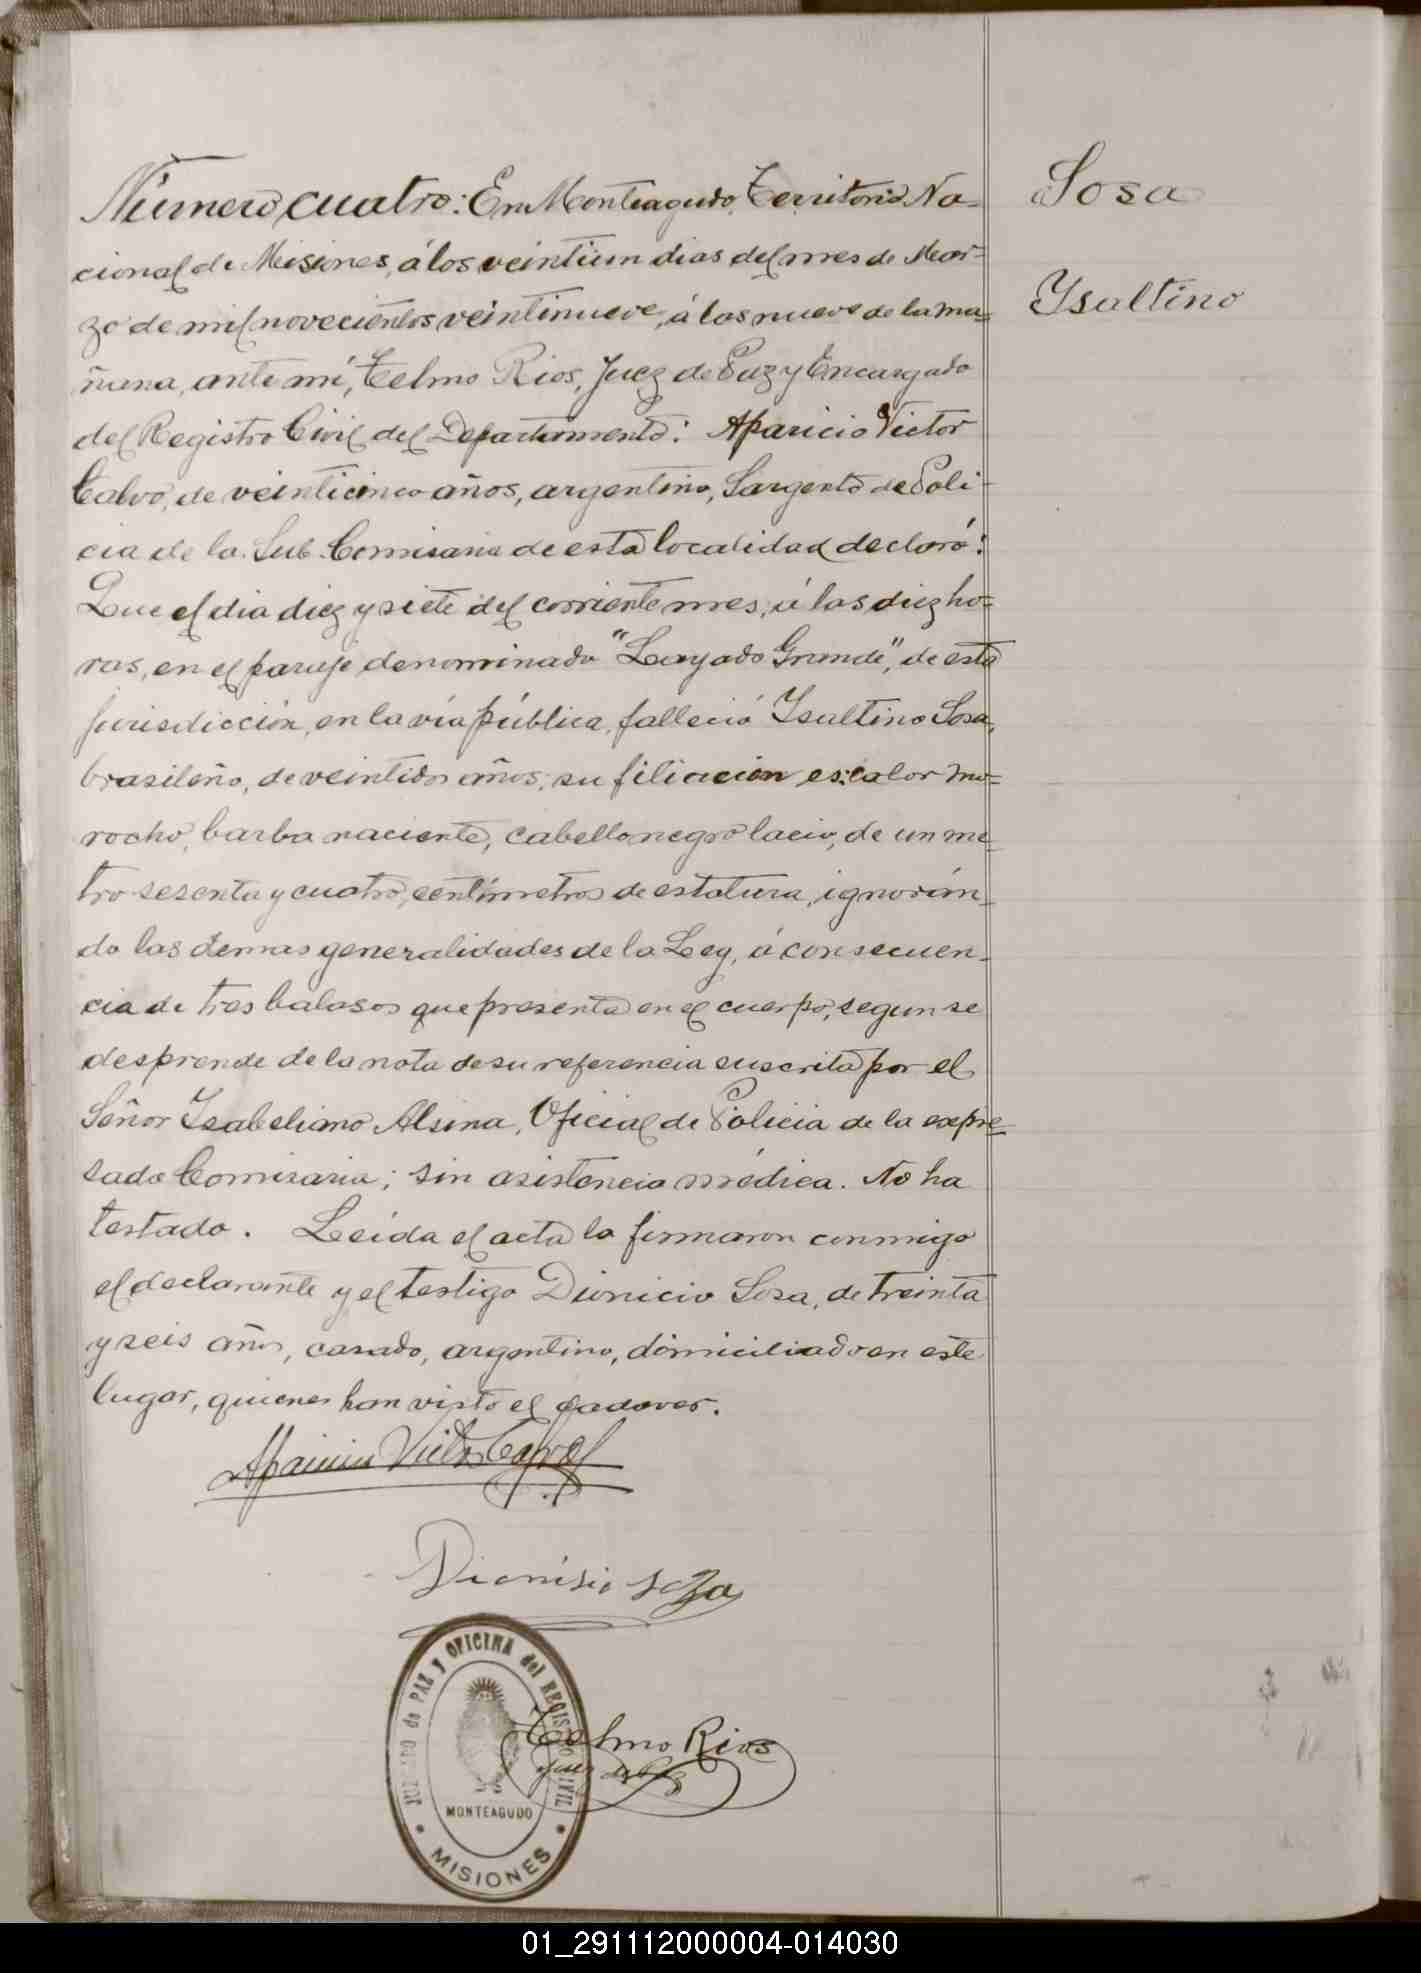 Número cuatro: En Monteagudo, Territorio Na-
cional de Misiones, á los veintiun dias del mes de Mar-
zo de mil novecientos veintinueve, á las nueve de la ma-
ñana, ante mí, Telmo Rios, Juez de Paz y Encargado
del Registro Civil del Departamento: Aparicio Victor
Calvo, de veinticinco años, argentino, Sargento de Poli-
cia de la Sub. Comisaria de esta localidad declaró:
Que el dia diez y siete del corriente mes, á las diez ho-
ras, en el paraje denominado "Layado Grande", de esta
jurisdicción, en la vía pública, falleció Ysaltino Sosa,
brasileño, de veintidos años, su filiación es: color mo-
rocho, barba naciente, cabello negro lacio, de un me-
tro sesenta y cuatro, centímetros de estatura, ignorán-
do las demas generalidades de la Ley, á consecuen-
cia de tres balasos que presenta en el cuerpo, segun se
desprende de la nota de su referencia suscrita por el
Señor Ysabeliano Alsina, Oficial de Policia de la expre-
sada Comisaria; sin asistencia médica. No ha
testado. Leída el acta la firmaron conmigo
el declarante y el testigo Dionicio Sosa, de treinta
y seis años, casado, argentino, domiciliado en este
lugar, quienes han visto el cadaver.
Aparicio Victor Calvo
Dionisio Soza
Telmo Rios
Juez de Paz
JUZGADO de PAZ y OFICINA del REGISTRO CIVIL
MONTEAGUDO
• MISIONES •
Sosa
Ysaltino
01_291112000004-014030